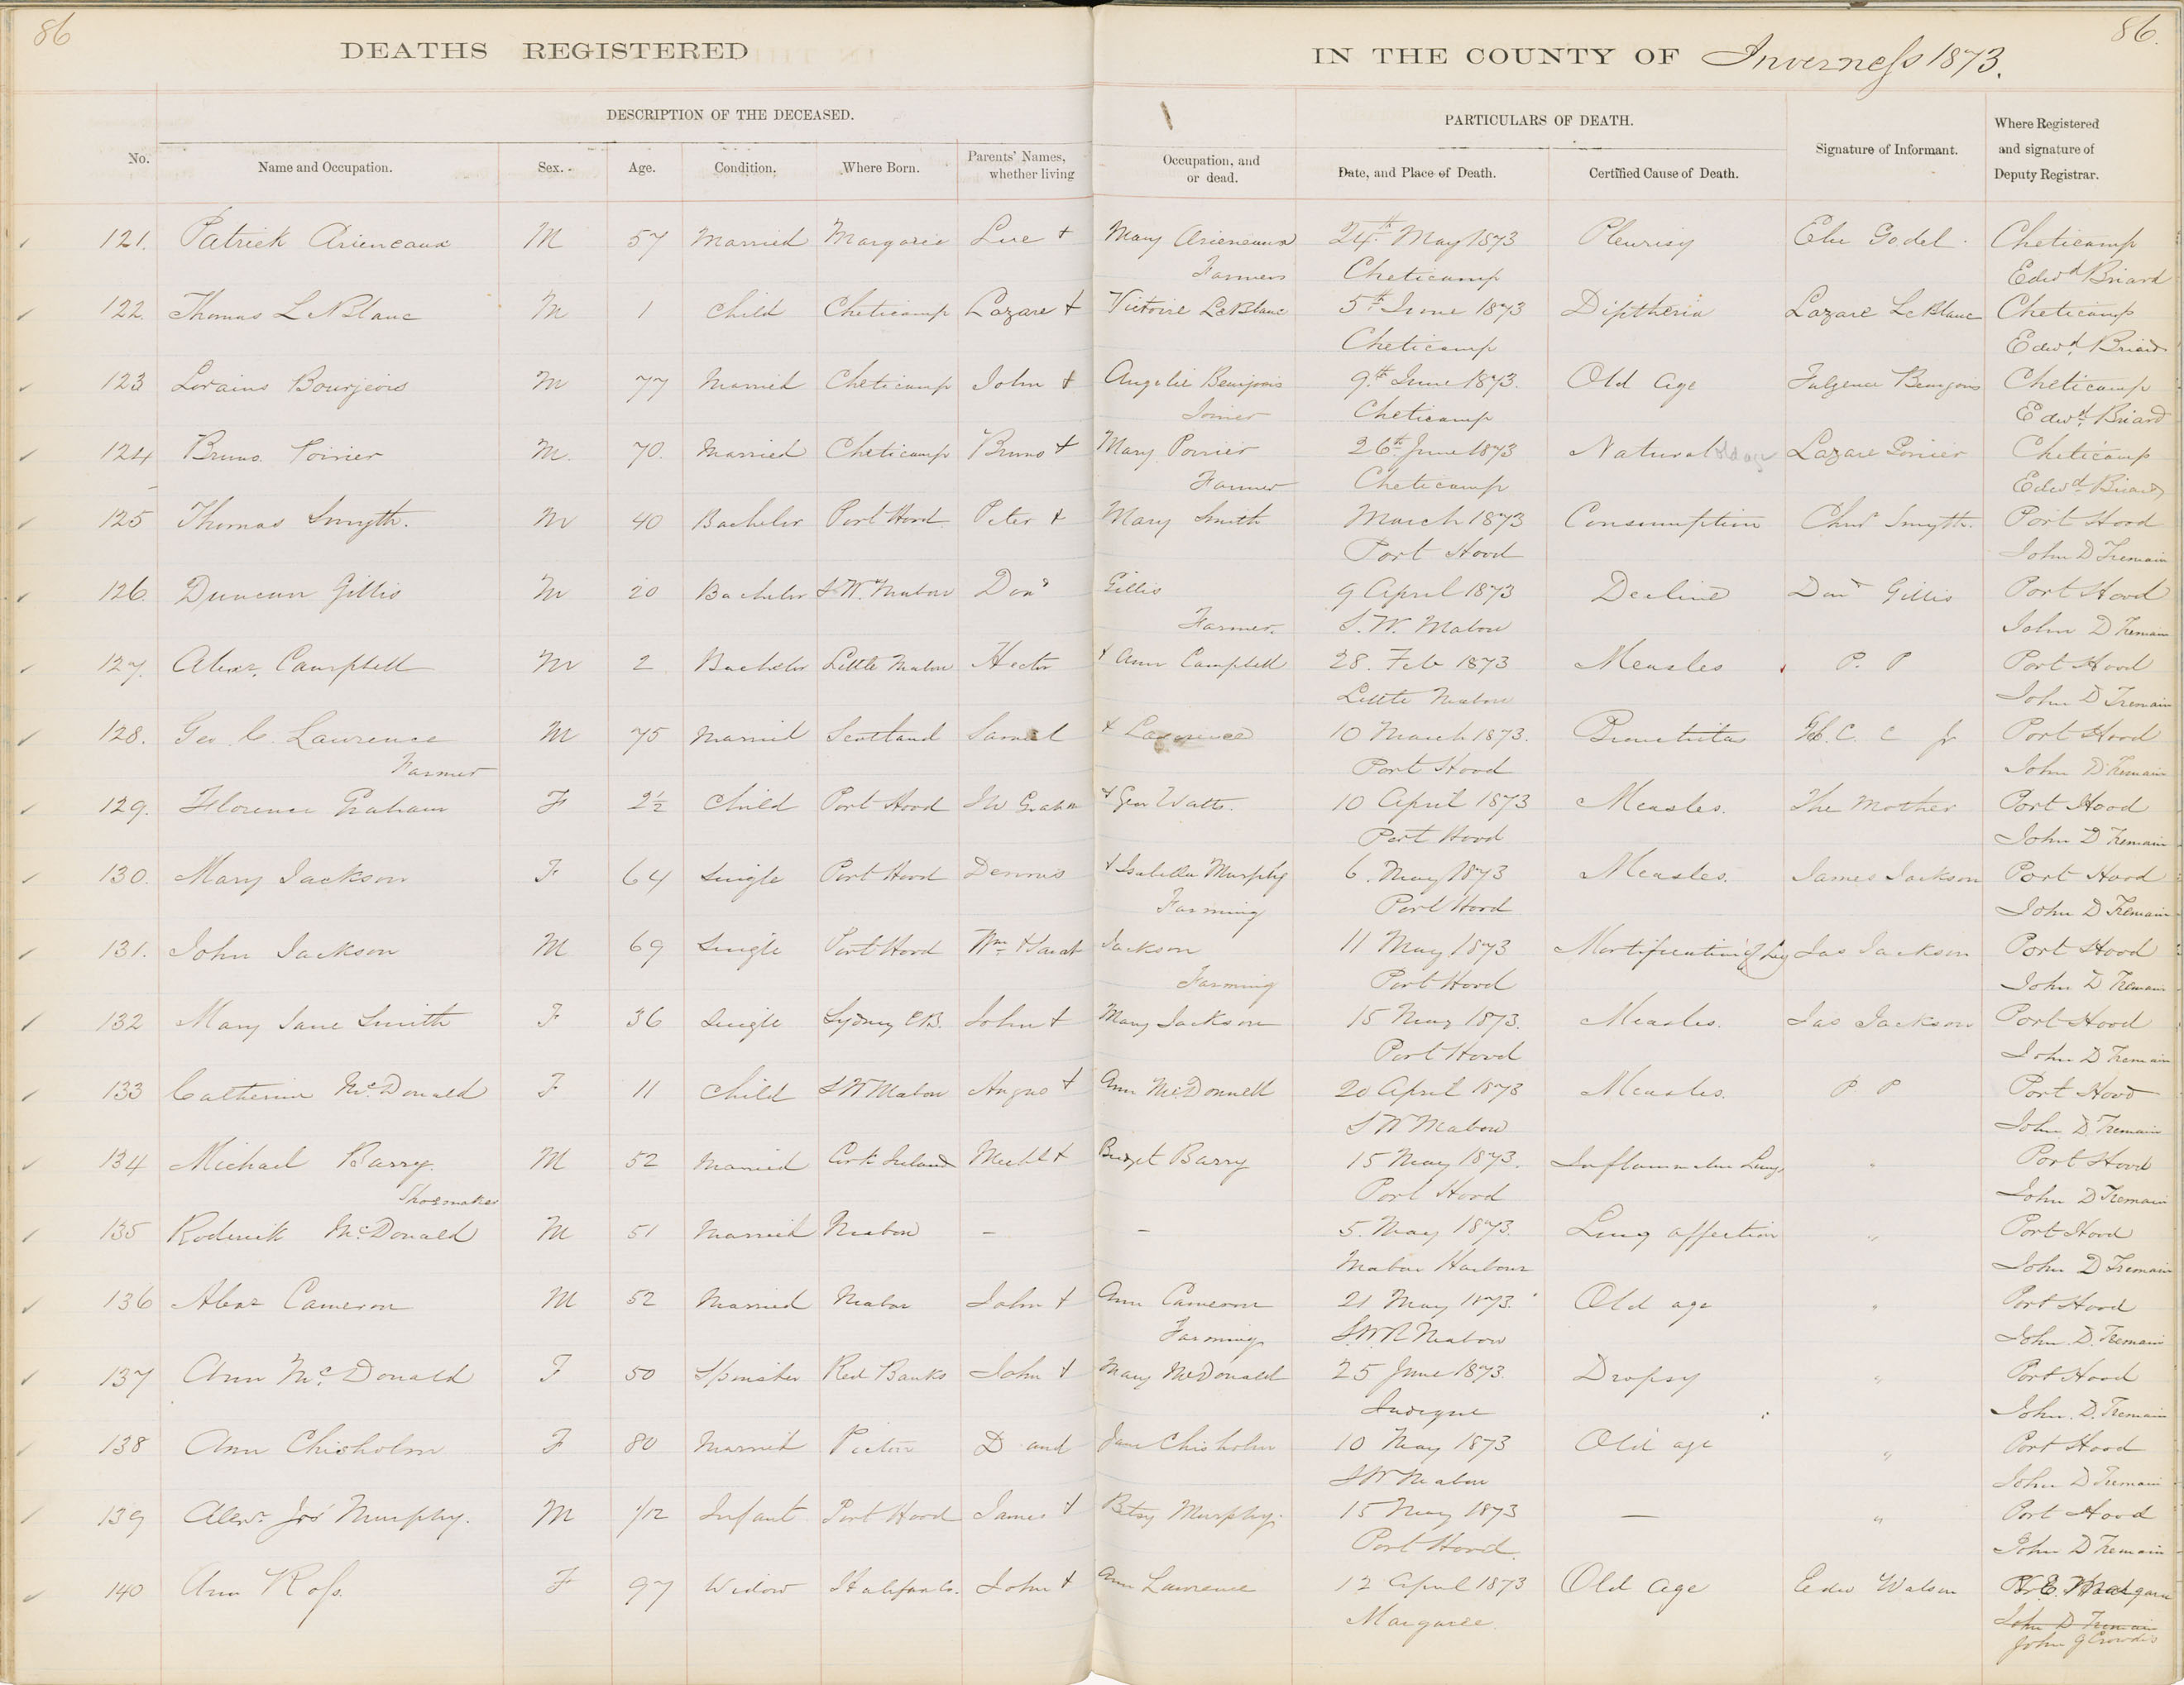 86
86.
DEATHS REGISTERED IN THE COUNTY OF Inverness 1873.
DESCRIPTION OF THE DECEASED.
PARTICULARS OF DEATH.
No.
Name and Occupation.
Sex.
Age.
Condition.
Where Born.
Parents' Names, whether living
Occupation, and or dead.
Date, and Place of Death.
Certified Cause of Death.
Signature of Informant.
Where Registered and signature of Deputy Registrar.
121. Patrick Arieneaux M 57 Married Margaree Luc + Mary Arieneaux 24th May 1873 Pleurisy Godel Cheticamp
Farmers Cheticamp Edwd Briard
122. Thomas LeBlanc M 1 Child Cheticamp Lazare + Victoire LeBlanc 5th June 1873 Diptheria Lazare LeBlanc Cheticamp
Cheticamp Edwd Briard
123 Bourjeois M 77 Married Cheticamp John + 9th June 1873. Old Age Cheticamp
Joiner Cheticamp Edwd Briard
124 Bruno Poirier M. 70. Married Cheticamp Bruno + Mary Poirier 26th June 1873 Natural old age Lazare Poirier Cheticamp
Farmer Cheticamp Edwd Briard
125 Thomas Smyth. M 40 Bachelor Port Hood Peter + Mary Smith March 1873 Consumption Smyth. Port Hood
Port Hood John D Tremain
126. Duncan Gillis M 20 Bachelor S.W. Mabou Dond Gillis 9 April 1873 Decline Dond Gillis Port Hood
Farmer. S.W. Mabou John D Tremain
127. Alexr. Campbell M 2 Bachelor Little Mabou Hector + Ann Campbell 28. Feb 1873 Measles P. P Port Hood
Little Mabou John D Tremain
128. Geo. C. Lawrence M 75 Married Scotland Samuel + Lawrence 10 March 1873. Bronchitis Port Hood
Farmer Port Hood John D Tremain
129. Florence Graham F 2½ Child Port Hood + Geo Watts. 10 April 1873 Measles. The Mother Port Hood
Port Hood John D Tremain
130. Mary Jackson F 64 Single Port Hood Dennis + Isabella Murphy 6. May 1873 Measles. James Jackson Port Hood
Farming Port Hood John D Tremain
131. John Jackson M 69 Single Port Hood Wm + Sarah Jackson 11 May 1873 Mortification of Leg Jas Jackson Port Hood
Farming Port Hood John D Tremain
132 Mary Jane Smith F 36 Single Sydney C.B. John + Mary Jackson 15 May 1873. Measles. Jas Jackson Port Hood
Port Hood John D Tremain
133 Catherine McDonald F 11 Child S W Mabou Angus + Ann McDonnell 20 April 1873 Measles. P P Port Hood
S W Mabou John D. Tremain
134 Michael Barry. M 52 Married Cork Ireland Michl + Bridget Barry 15 May 1873. Lungs " Port Hood
Shoemaker Port Hood John D Tremain
135 Roderick McDonald M 51 Married Mabou – – 5. May 1873. Lung affection " Port Hood
Mabou Harbour John D Tremain
136 Alexr Cameron M 52 Married Mabou John + Ann Cameron 21 May 1873. Old age " Port Hood
Farming S.W.R Mabou John D. Tremain
137 Ann McDonald F 50 Spinster Red Banks John + Mary McDonald 25 June 1873. Dropsy " Port Hood
Judique John. D. Tremain
138 Ann Chisholm F 80 Married Pictou D and Jane Chisholm 10 May 1873 Old age " Port Hood
S W Mabou John D Tremain
139 Alexr Jos Murphy. M 1/12 Infant Port Hood James + Betsy Murphy. 15 May 1873 — " Port Hood
Port Hood. John D Tremain
140 Ann Ross. F 97 Widow Halifax Co. John + Ann Lawrence 12 April 1873 Old Age Watson
Margaree. John D Tremain